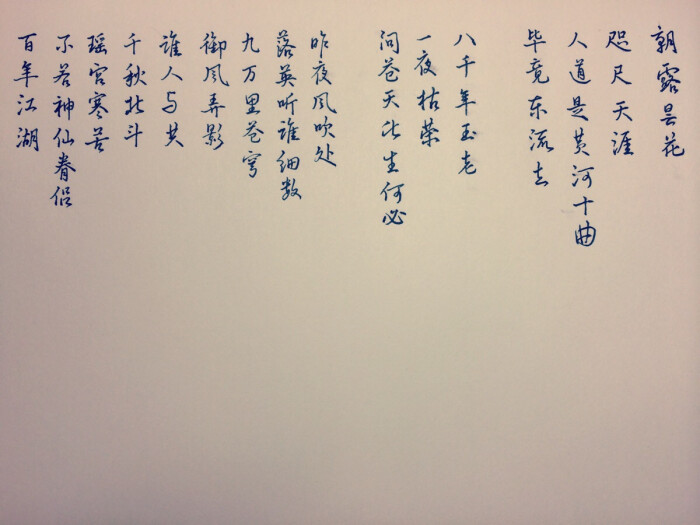 朝露昙花
咫尺天涯
人道是黄河十曲
毕竟东流去
八千年玉老
一夜枯荣
问苍天此生何必
昨夜风吹处
落英听谁细数
九万里苍穹
御风弄影
谁人与共
千秋北斗
瑶宫寒苦
不若神仙眷侣
百年江湖